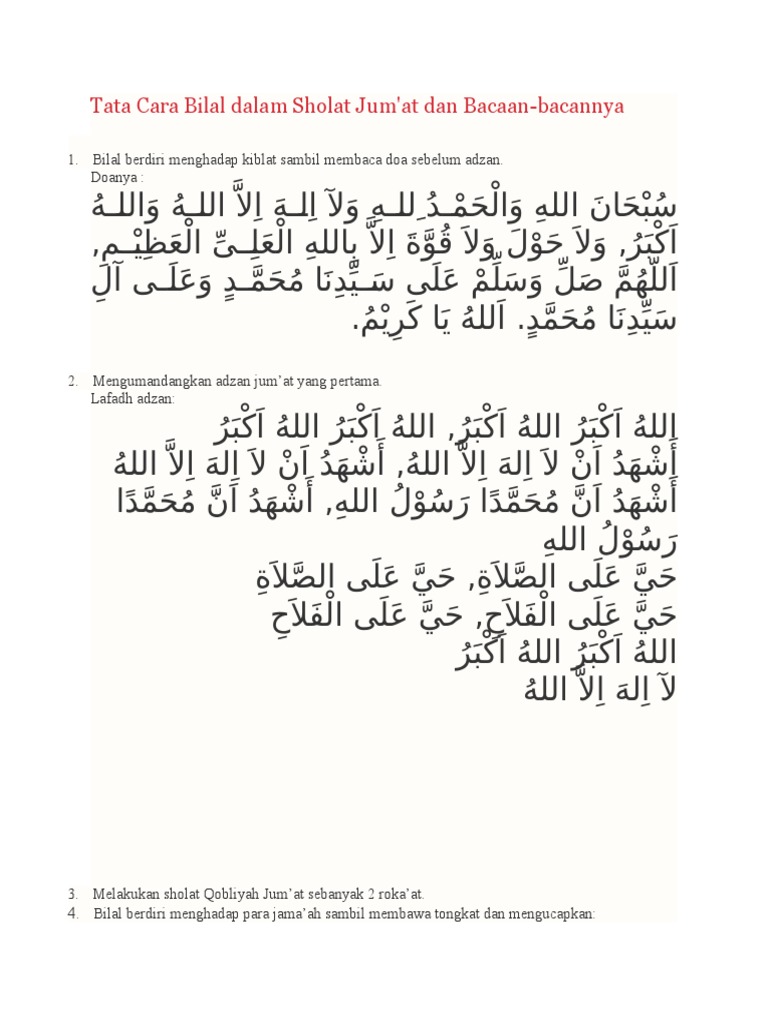 Tata Cara Bilal dalam Sholat Jum'at dan Bacaan-bacannya
1. Bilal berdiri menghadap kiblat sambil membaca doa sebelum adzan.
Doanya :
سُبْحَانَ اللهِ وَالْحَمْـدُ ِللـهِ وَلآ اِلـهَ اِلاَّ اللـهُ وَاللـهُ
اَكْبَرُ, وَلاَ حَوْلَ وَلاَ قُوَّةَ اِلاَّ بِاللهِ الْعَلِـىِّ الْعَظِيْـمِ,
اَللّهُمَّ صَلِّ وَسَلِّمْ عَلَى سَـيِّدِنَا مُحَمَّـدٍ وَعَلَـى آلِ
سَيِّدِنَا مُحَمَّدٍ. اَللهُ يَا كَرِيْمُ.
2. Mengumandangkan adzan jum’at yang pertama.
Lafadh adzan:
اللهُ اَكْبَرُ اللهُ اَكْبَرُ, اللهُ اَكْبَرُ اللهُ اَكْبَرُ
أَشْهَدُ اَنْ لاَ اِلهَ اِلاَّ اللهُ, أَشْهَدُ اَنْ لاَ اِلهَ اِلاَّ اللهُ
أَشْهَدُ اَنَّ مُحَمَّدًا رَسُوْلُ اللهِ, أَشْهَدُ اَنَّ مُحَمَّدًا
رَسُوْلُ اللهِ
حَيَّ عَلَى الصَّلاَةِ, حَيَّ عَلَى الصَّلاَةِ
حَيَّ عَلَى الْفَلاَحِ, حَيَّ عَلَى الْفَلاَحِ
اللهُ اَكْبَرُ اللهُ اَكْبَرُ
لآ اِلهَ اِلاَّ اللهُ
3. Melakukan sholat Qobliyah Jum’at sebanyak 2 roka’at.
4. Bilal berdiri menghadap para jama’ah sambil membawa tongkat dan mengucapkan: